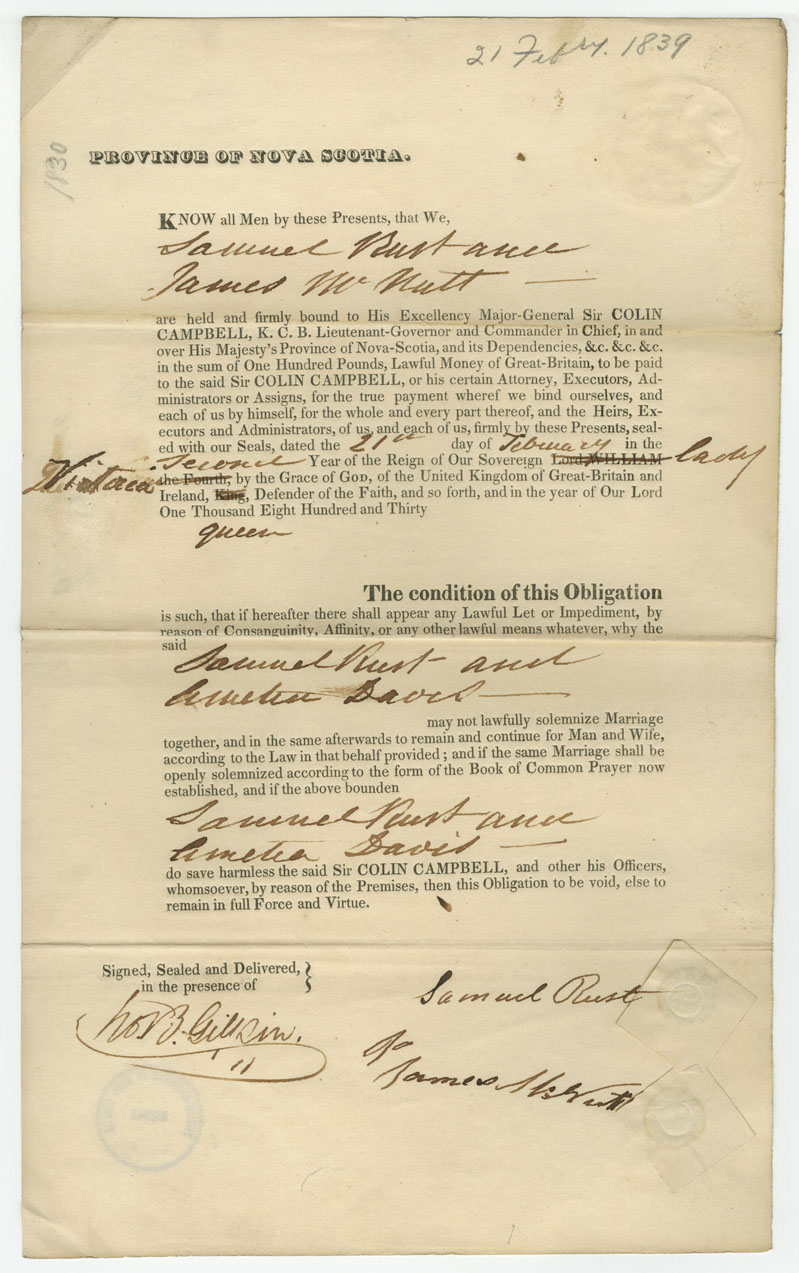 21 Febry. 1839
1830
PROVINCE OF NOVA SCOTIA.
KNOW all Men by these Presents, that We,
Samuel Rust and
James McNutt
are held and firmly bound to His Excellency Major-General Sir COLIN
CAMPBELL, K. C. B. Lieutenant-Governor and Commander in Chief, in and
over His Majesty's Province of Nova-Scotia, and its Dependencies, &c. &c. &c.
in the sum of One Hundred Pounds, Lawful Money of Great-Britain, to be paid
to the said Sir COLIN CAMPBELL, or his certain Attorney, Executors, Ad-
ministrators or Assigns, for the true payment wheref we bind ourselves, and
each of us by himself, for the whole and every part thereof, and the Heirs, Ex-
ecutors and Administrators, of us, and each of us, firmly by these Presents, seal-
ed with our Seals, dated the 21st day of February in the
Second Year of the Reign of Our Sovereign Lord WILLIAM Lady
Victoria the Fourth, by the Grace of GOD, of the United Kingdom of Great-Britain and
Ireland, King, Defender of the Faith, and so forth, and in the year of Our Lord
One Thousand Eight Hundred and Thirty
queen
The condition of this Obligation
is such, that if hereafter there shall appear any Lawful Let or Impediment, by
reason of Consanguinity, Affinity, or any other lawful means whatever, why the
said
Samuel Rust and
Amelia Davis
may not lawfully solemnize Marriage
together, and in the same afterwards to remain and continue for Man and Wife,
according to the Law in that behalf provided; and if the same Marriage shall be
openly solemnized according to the form of the Book of Common Prayer now
established, and if the above bounden
Samuel Rust and
Amelia Davis
do save harmless the said Sir COLIN CAMPBELL, and other his Officers,
whomsoever, by reason of the Premises, then this Obligation to be void, else to
remain in full Force and Virtue.
Signed, Sealed and Delivered,
in the presence of
Samuel Rust
James McNutt